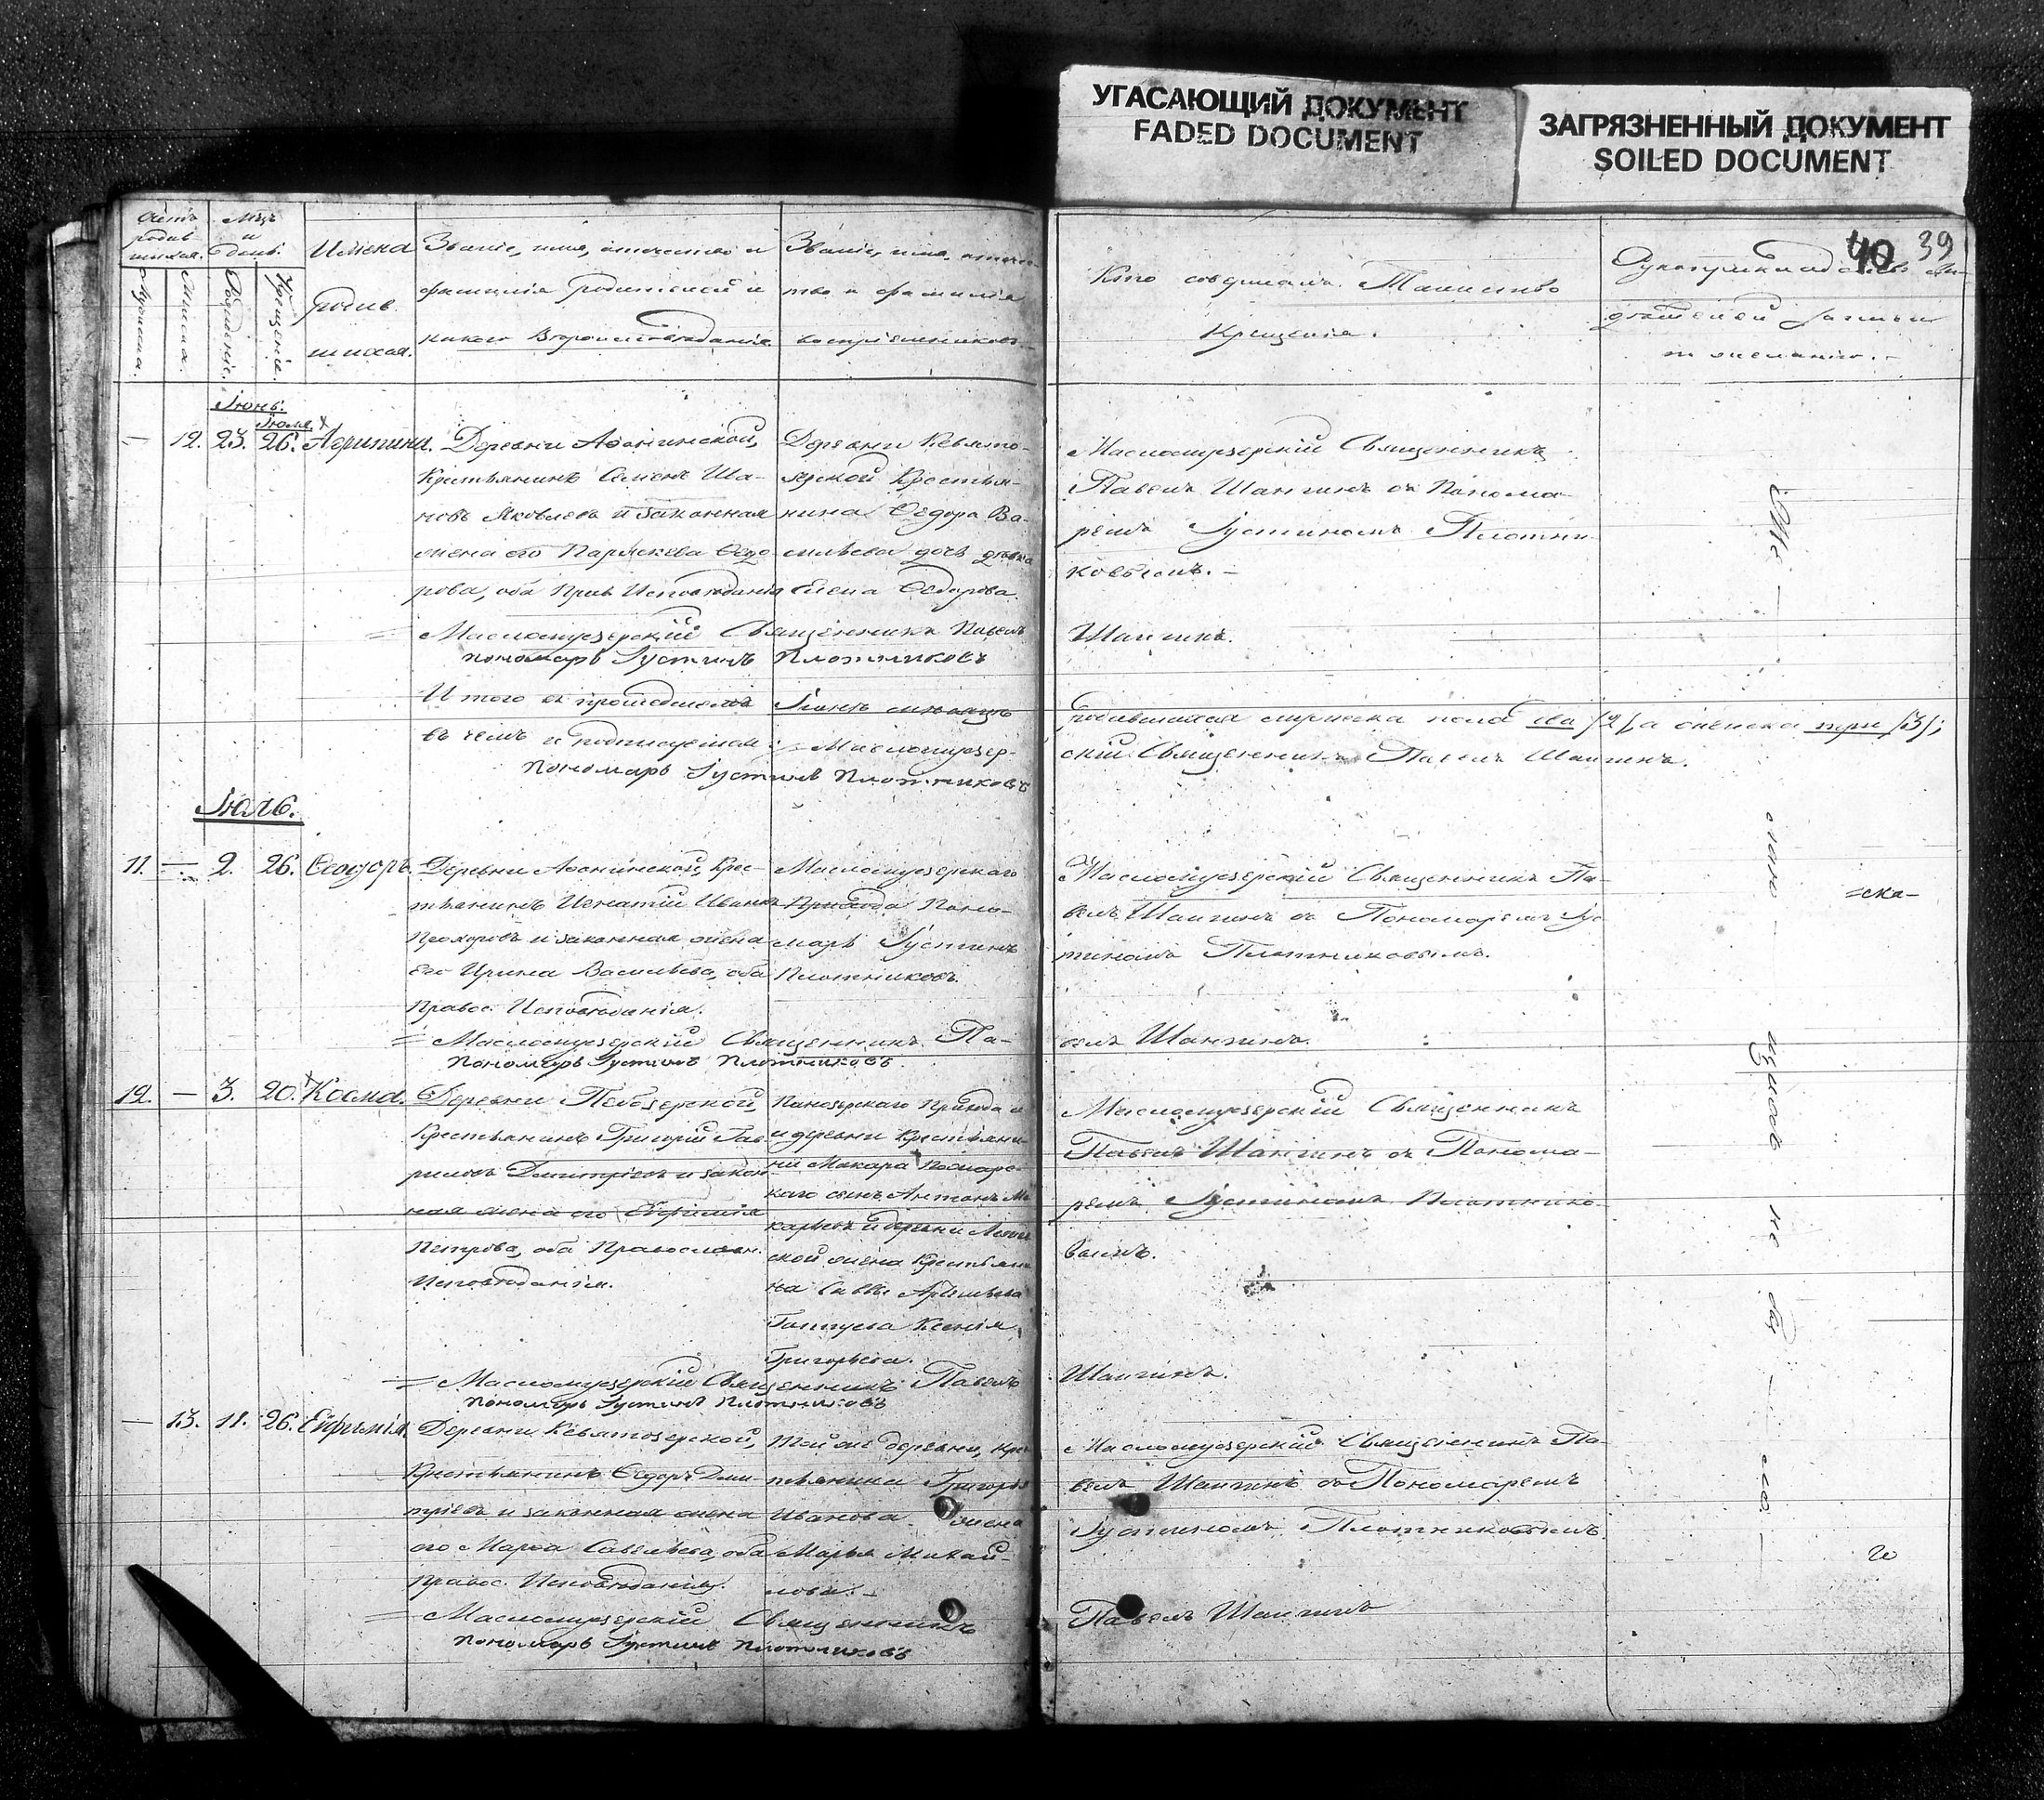 УГАСАЮЩИЙ ДОКУМЕНТ
FADED DOCUMENT
ЗАГРЯЗНЕННЫЙ ДОКУМЕНТ
SOILED DOCUMENT
40 39
Счетъ родив шихся.
Мужеска.
Женска.
Мѣц. и день.
Рожденіе.
Крещеніе.
Имена
родив
шихся.
Званіе, имя, отчество и
фамилія родителей и
какого Вероисповѣданія
Званіе, имя, отчес-
тво и фамилія
воспріемниковъ.
Кто совершалъ Таинство
Крещенія.
Рукоприкладство сви-
дѣтелей записи
по желанію.
Іюнь.
Іюля
— 12. 23. 26. Агрипина.
Деревни Афонинской,
Крестьянинъ Семенъ
новъ Яковлевъ и законная
жена его Параскева Ѳедо
рова, оба Прав. Исповѣданія
Деревни Кевято-
зерской Крестья-
нина Ѳедора Ва-
сильева дочь дѣвка
Елена Ѳедорова.
Масломузерскій Священникъ
Павелъ Шангинъ съ Понома-
ремъ Іустиномъ Плотни-
ковымъ. —
= Масломузерскій Священникъ Павелъ Шангинъ.
Пономарь Іустинъ Плотниковъ
Итого въ прошедшемъ Іюнѣ мѣсяцѣ родившихся мужеска пола два /2/, а женска три /3/;
въ чемъ и подписуемся: = Масломузер-
скій Священникъ Павелъ Шангинъ.
Пономарь Іустинъ Плотниковъ
Іюль.
11. — 2. 26. Ѳеодоръ.
Деревни Афонинской, Крес-
тьянинъ Игнатій Ивановъ
Прохоровъ и законная жена
его Ирина Васильева, оба
Правос. Исповѣданія.
Масломузерскаго
Прихода Поно-
марь Іустинъ
Плотниковъ.
Масломузерскій Священникъ Па-
велъ Шангинъ съ Пономаремъ Іус-
тиномъ Плотниковымъ.
= Масломузерскій Священникъ Па-
велъ Шангинъ.
Пономарь Іустинъ Плотниковъ.
12. — 3. 20. Косма.
Деревни Пебозерской,
Крестьянинъ Григорій Гав
риловъ Дмитріевъ и закон-
ная жена его Евфимія
Петрова, оба Православн.
Исповѣданія.
Панозерскаго Прихода и
и деревни Крестьяни-
на Макара
каго сынъ Антонъ Ма
карьевъ и деревни
ской жена Крестьяни
на Саввы Артемьева
Ксенія
Григорьева.
Масломузерскій Священникъ
Павелъ Шангинъ съ Понома-
ремъ Іустиномъ Плотнико-
вымъ.
= Масломузерскій Священникъ Павелъ
Шангинъ.
Пономарь Іустинъ Плотниковъ
— 13. 11. 26. Евфимія
Деревни Кевятозерской,
Крестьянинъ Ѳедоръ Дми-
тріевъ и законная жена
его Марѳа Савельева, оба
Правос. Исповѣданія.
Той же деревни, кре
стьянина Григорія
Иванова жена
Марья Михай-
лова. —
Масломузерскій Священникъ Па-
велъ Шангинъ съ Пономаремъ
Іустиномъ Плотниковымъ
= Масломузерскій Священникъ
Павелъ Шангинъ
Пономарь Іустинъ Плотниковъ